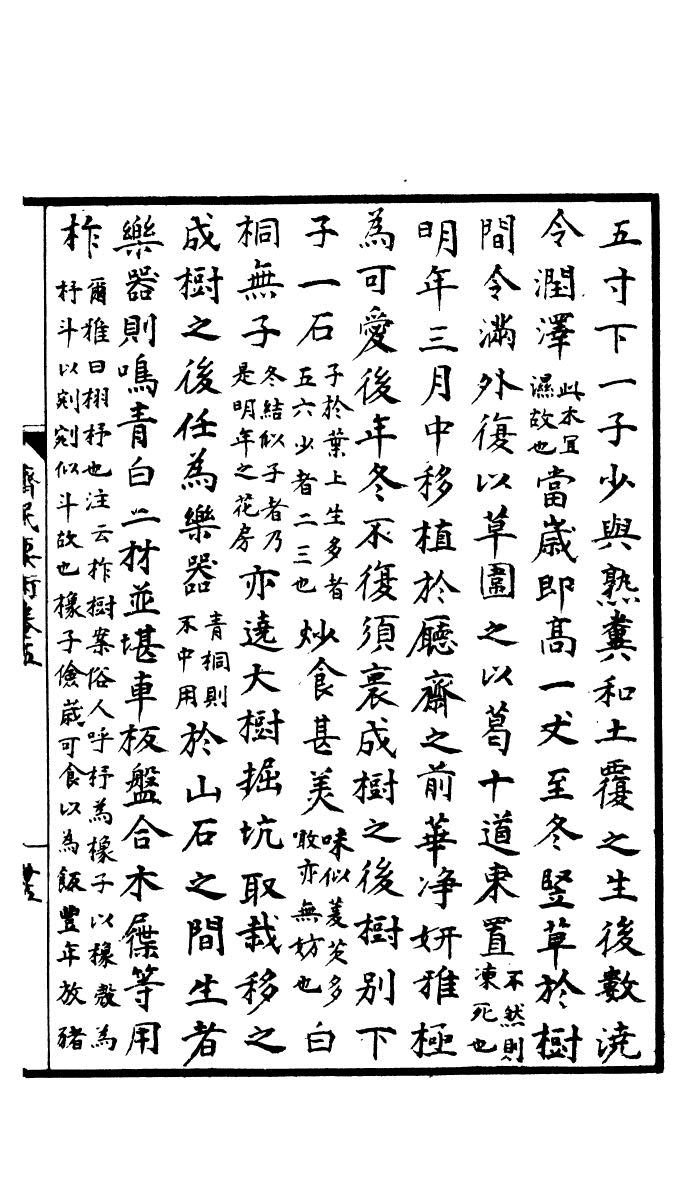 五寸下一子少與熟糞和土覆之生後數澆
令潤澤此木宜濕故也當歲即高一丈至冬竪草於樹
間令滿外復以草圍之以葛十道束置不然則凍死也
明年三月中移植於廳齋之前華净妍雅極
為可愛後年冬不復須裹成樹之後樹別下
子一石子於葉上生多者五六少者二三也炒食甚美味似菱芡多噉亦無妨也白
桐無子冬結似子者乃是明年之花房亦遶大樹掘坑取栽移之
成樹之後任為樂器青桐則不中用於山石之間生者
樂器則鳴青白二材並堪車板盤合木屧等用
柞爾雅曰栩杼也注云柞樹案俗人呼杼為橡子以橡殻為杼斗以剜剜似斗故也橡子儉歲可食以為飯豐年放豬
齊民要術卷五